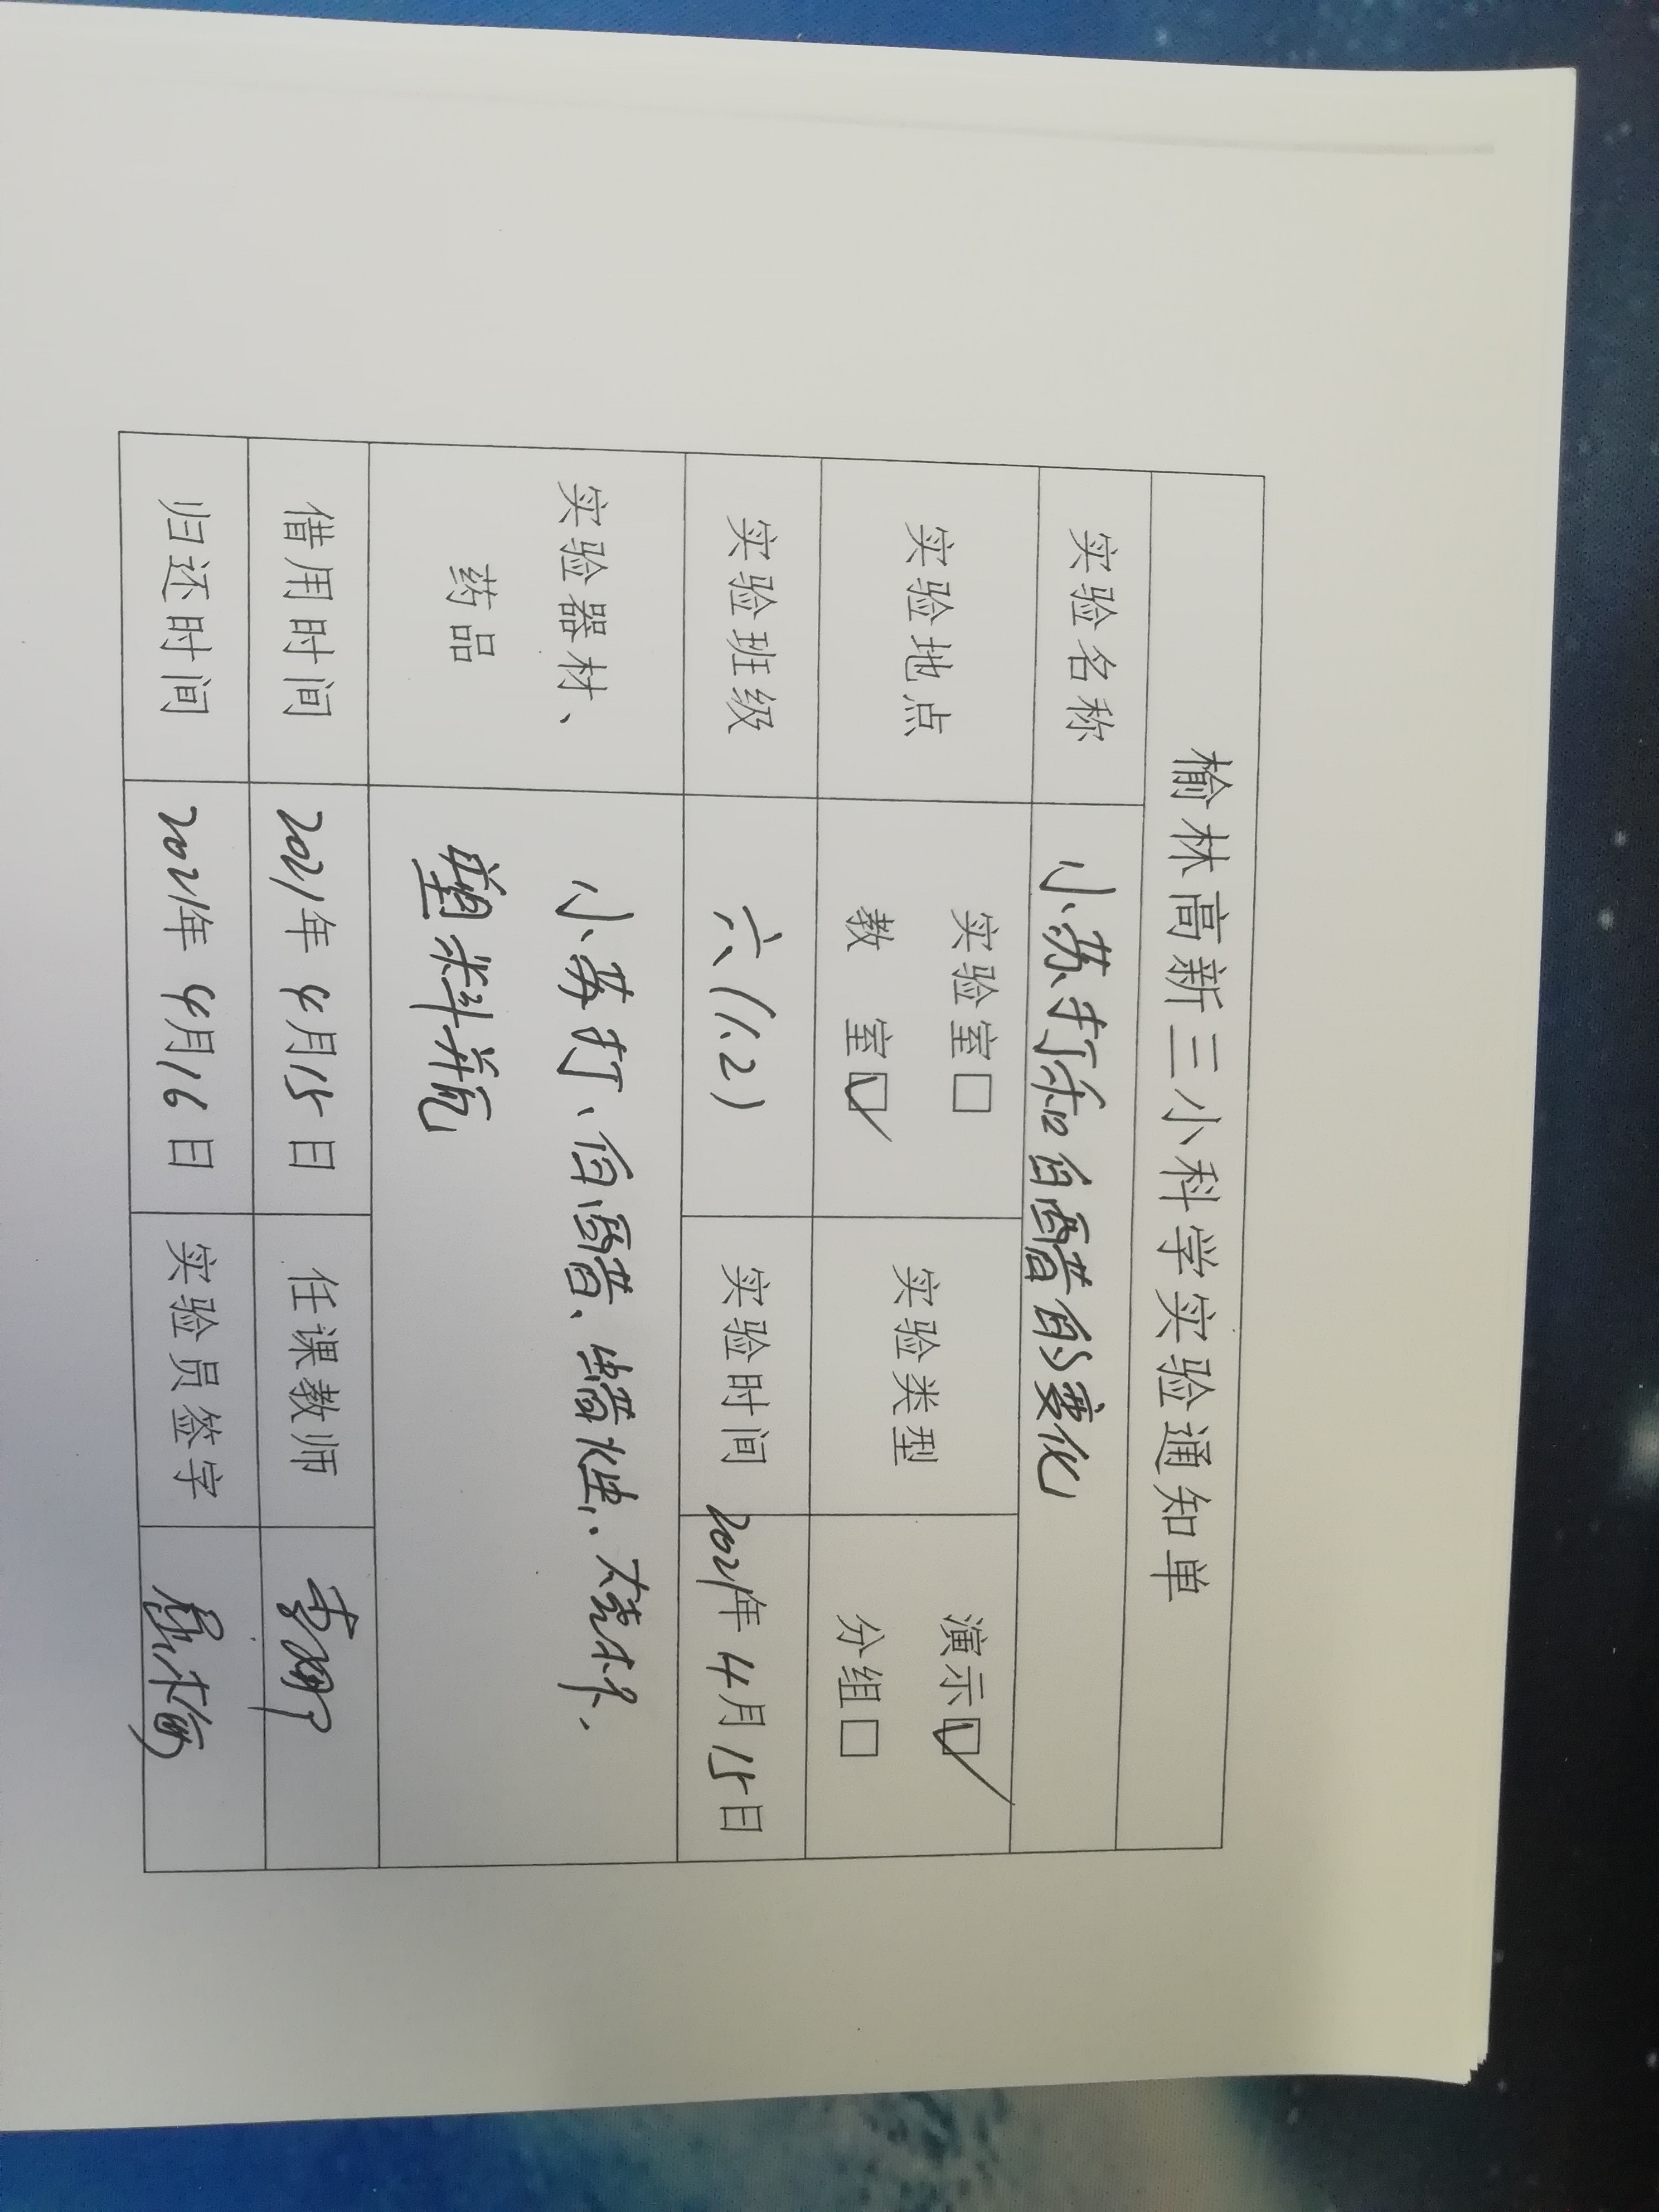 榆林高新三小科学实验通知单
实验名称 小苏打和白醋的变化
实验地点 实验室□ 教 室☑ 实验类型 演示☑ 分组□
实验班级 六(1.2) 实验时间 2021年4月15日
实验器材、药品 小苏打、白醋、蜡烛、烧杯、
塑料瓶
借用时间 2021年4月15日 任课教师
归还时间 2021年4月16日 实验员签字